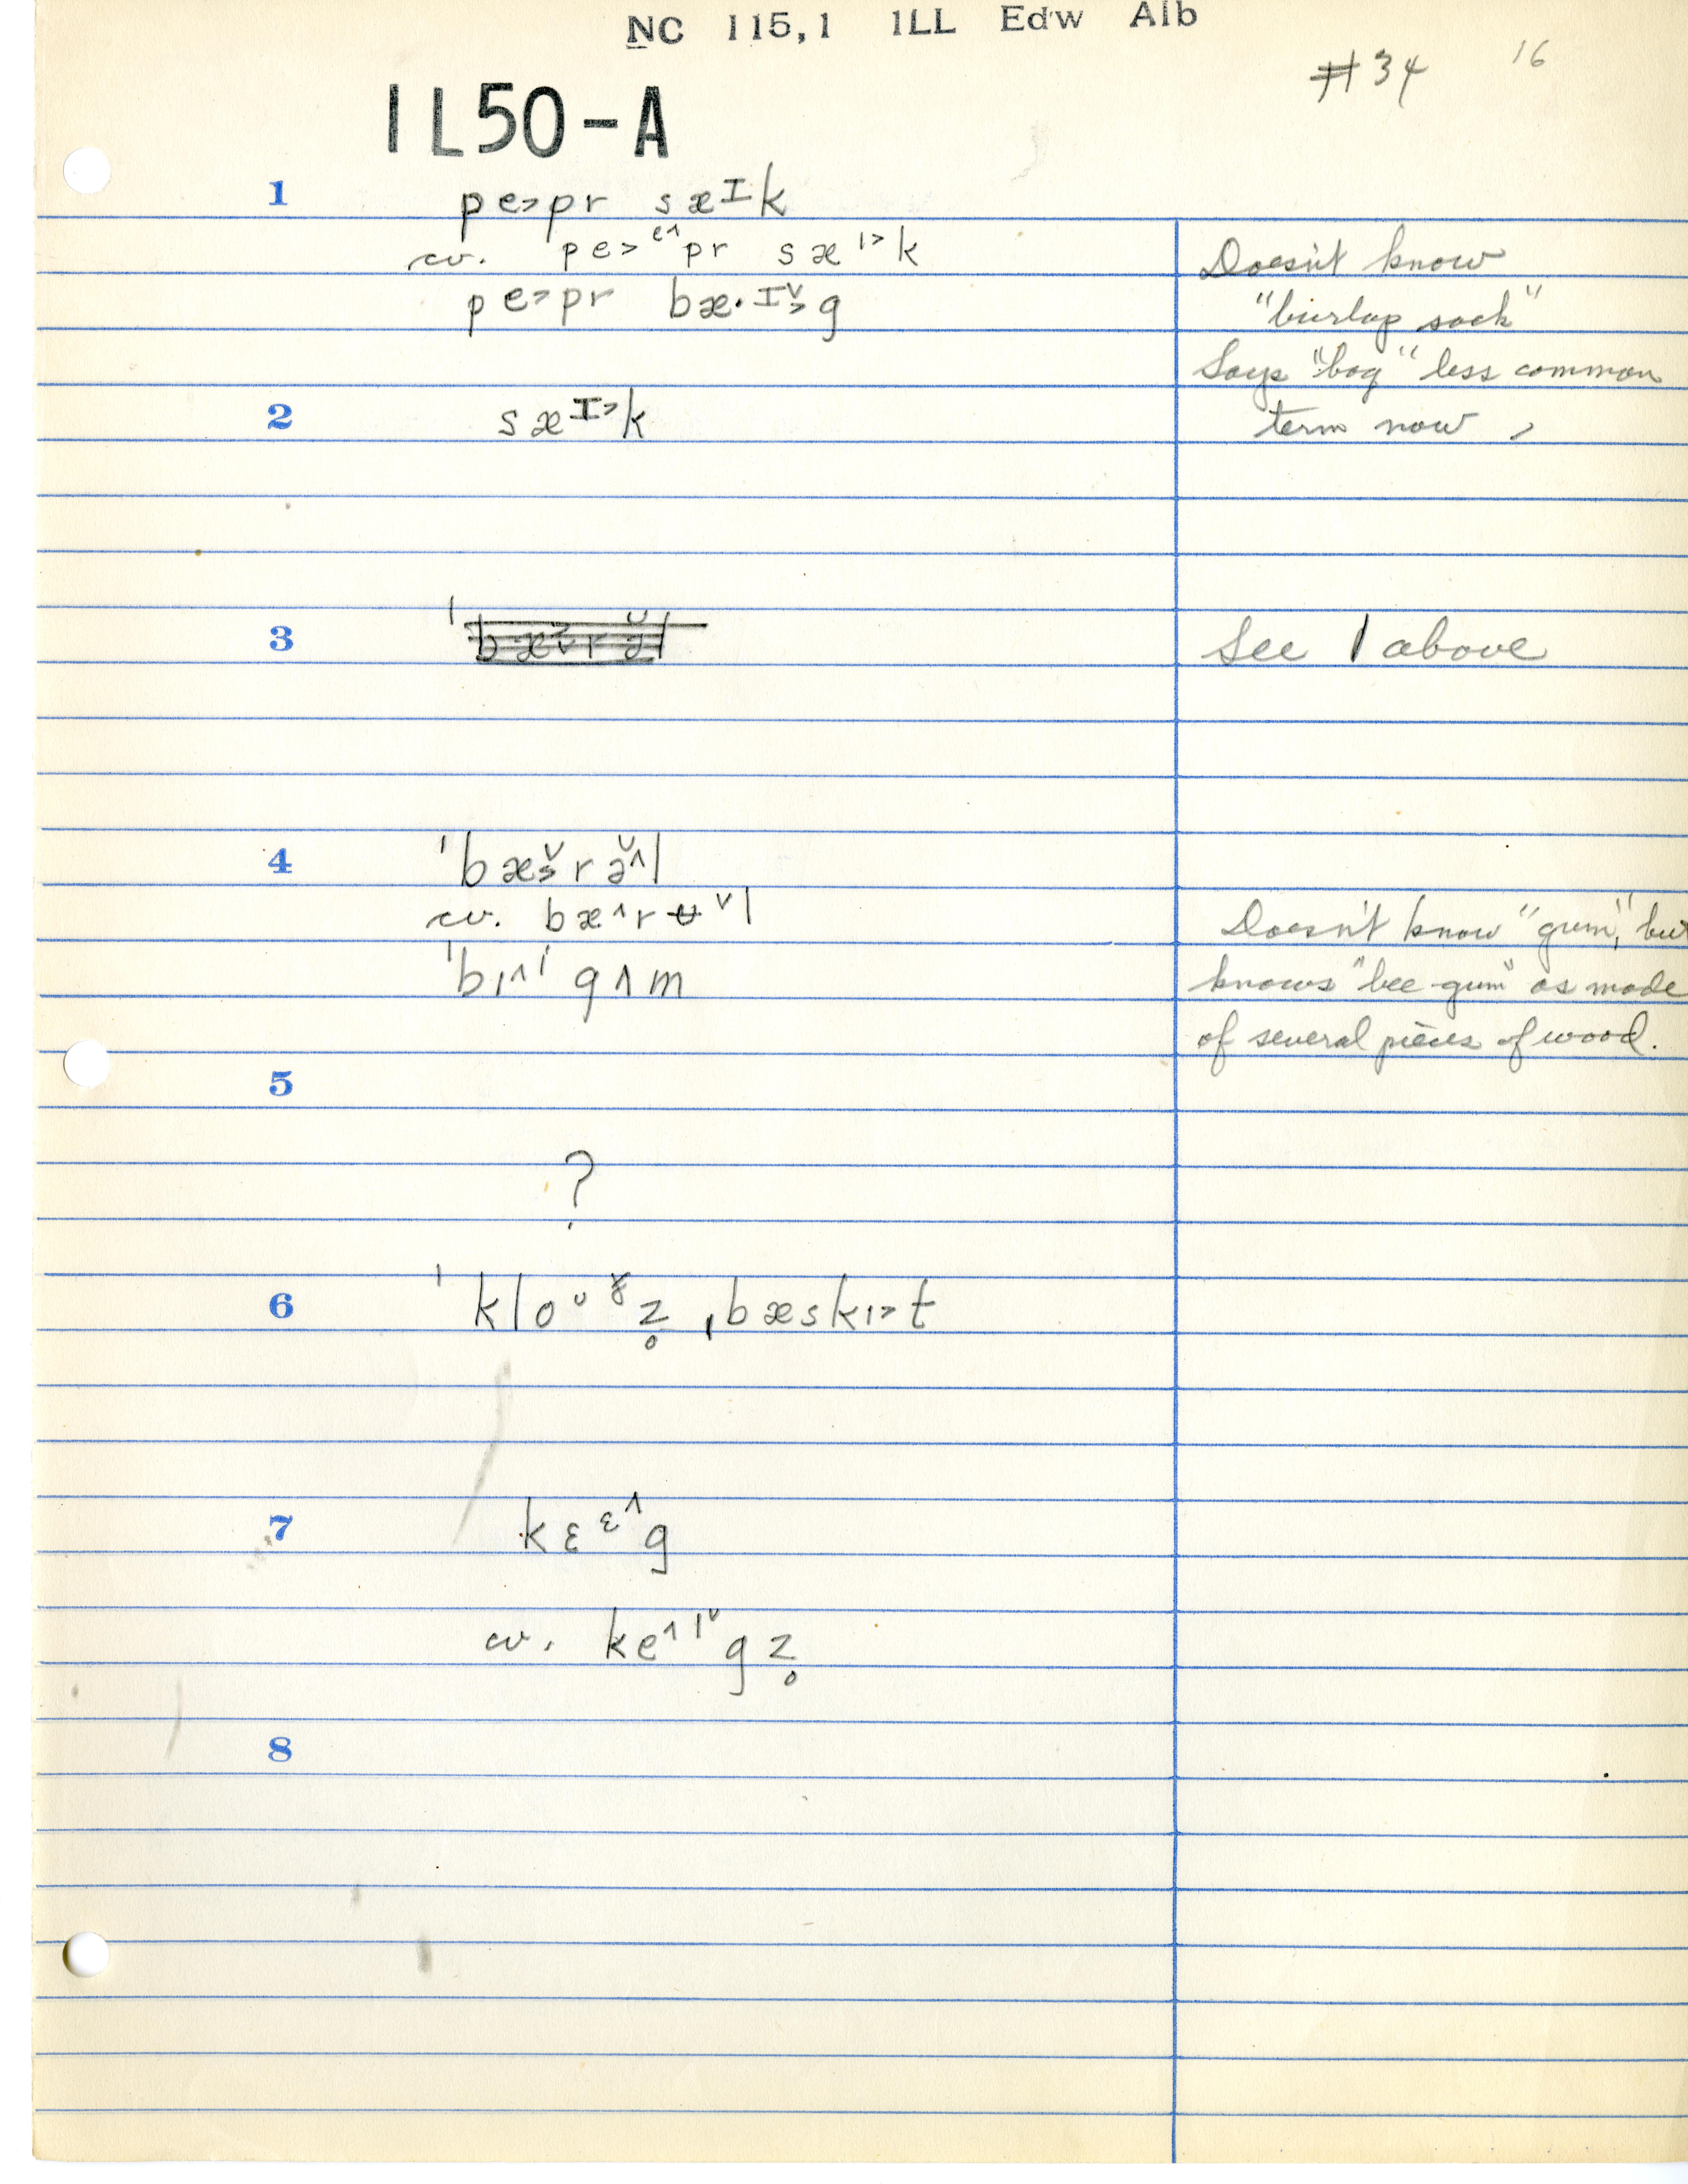 NC 115,1 ILL Edw Alb
#34 16
1L50-A
1 pe˃pr sæᴵk
cv. pe˃ᵉ^pr sæᶦ˃k
Doesn't know
pe˃pr bæ·ɪ˅˃g
"burlap sack"
Says "bag" less common
2 sæᴵ˃k
term now,
3 ˈbæ˅˃rə̆l
See 1 above
4 ˈbæ˅˃rə̆^l
cv. bæ^rʉ˅l
Doesn't know "gum," but
ˈbɪ^ᶦ gʌm
knows "bee-gum" as made
of several pieces of wood.
5
?
6 ˈkloᵘᵟz̥ ˌbæskɪ˃t
7 kɛᵋ^g
cv. ke^ᶦ˅gz̥
8